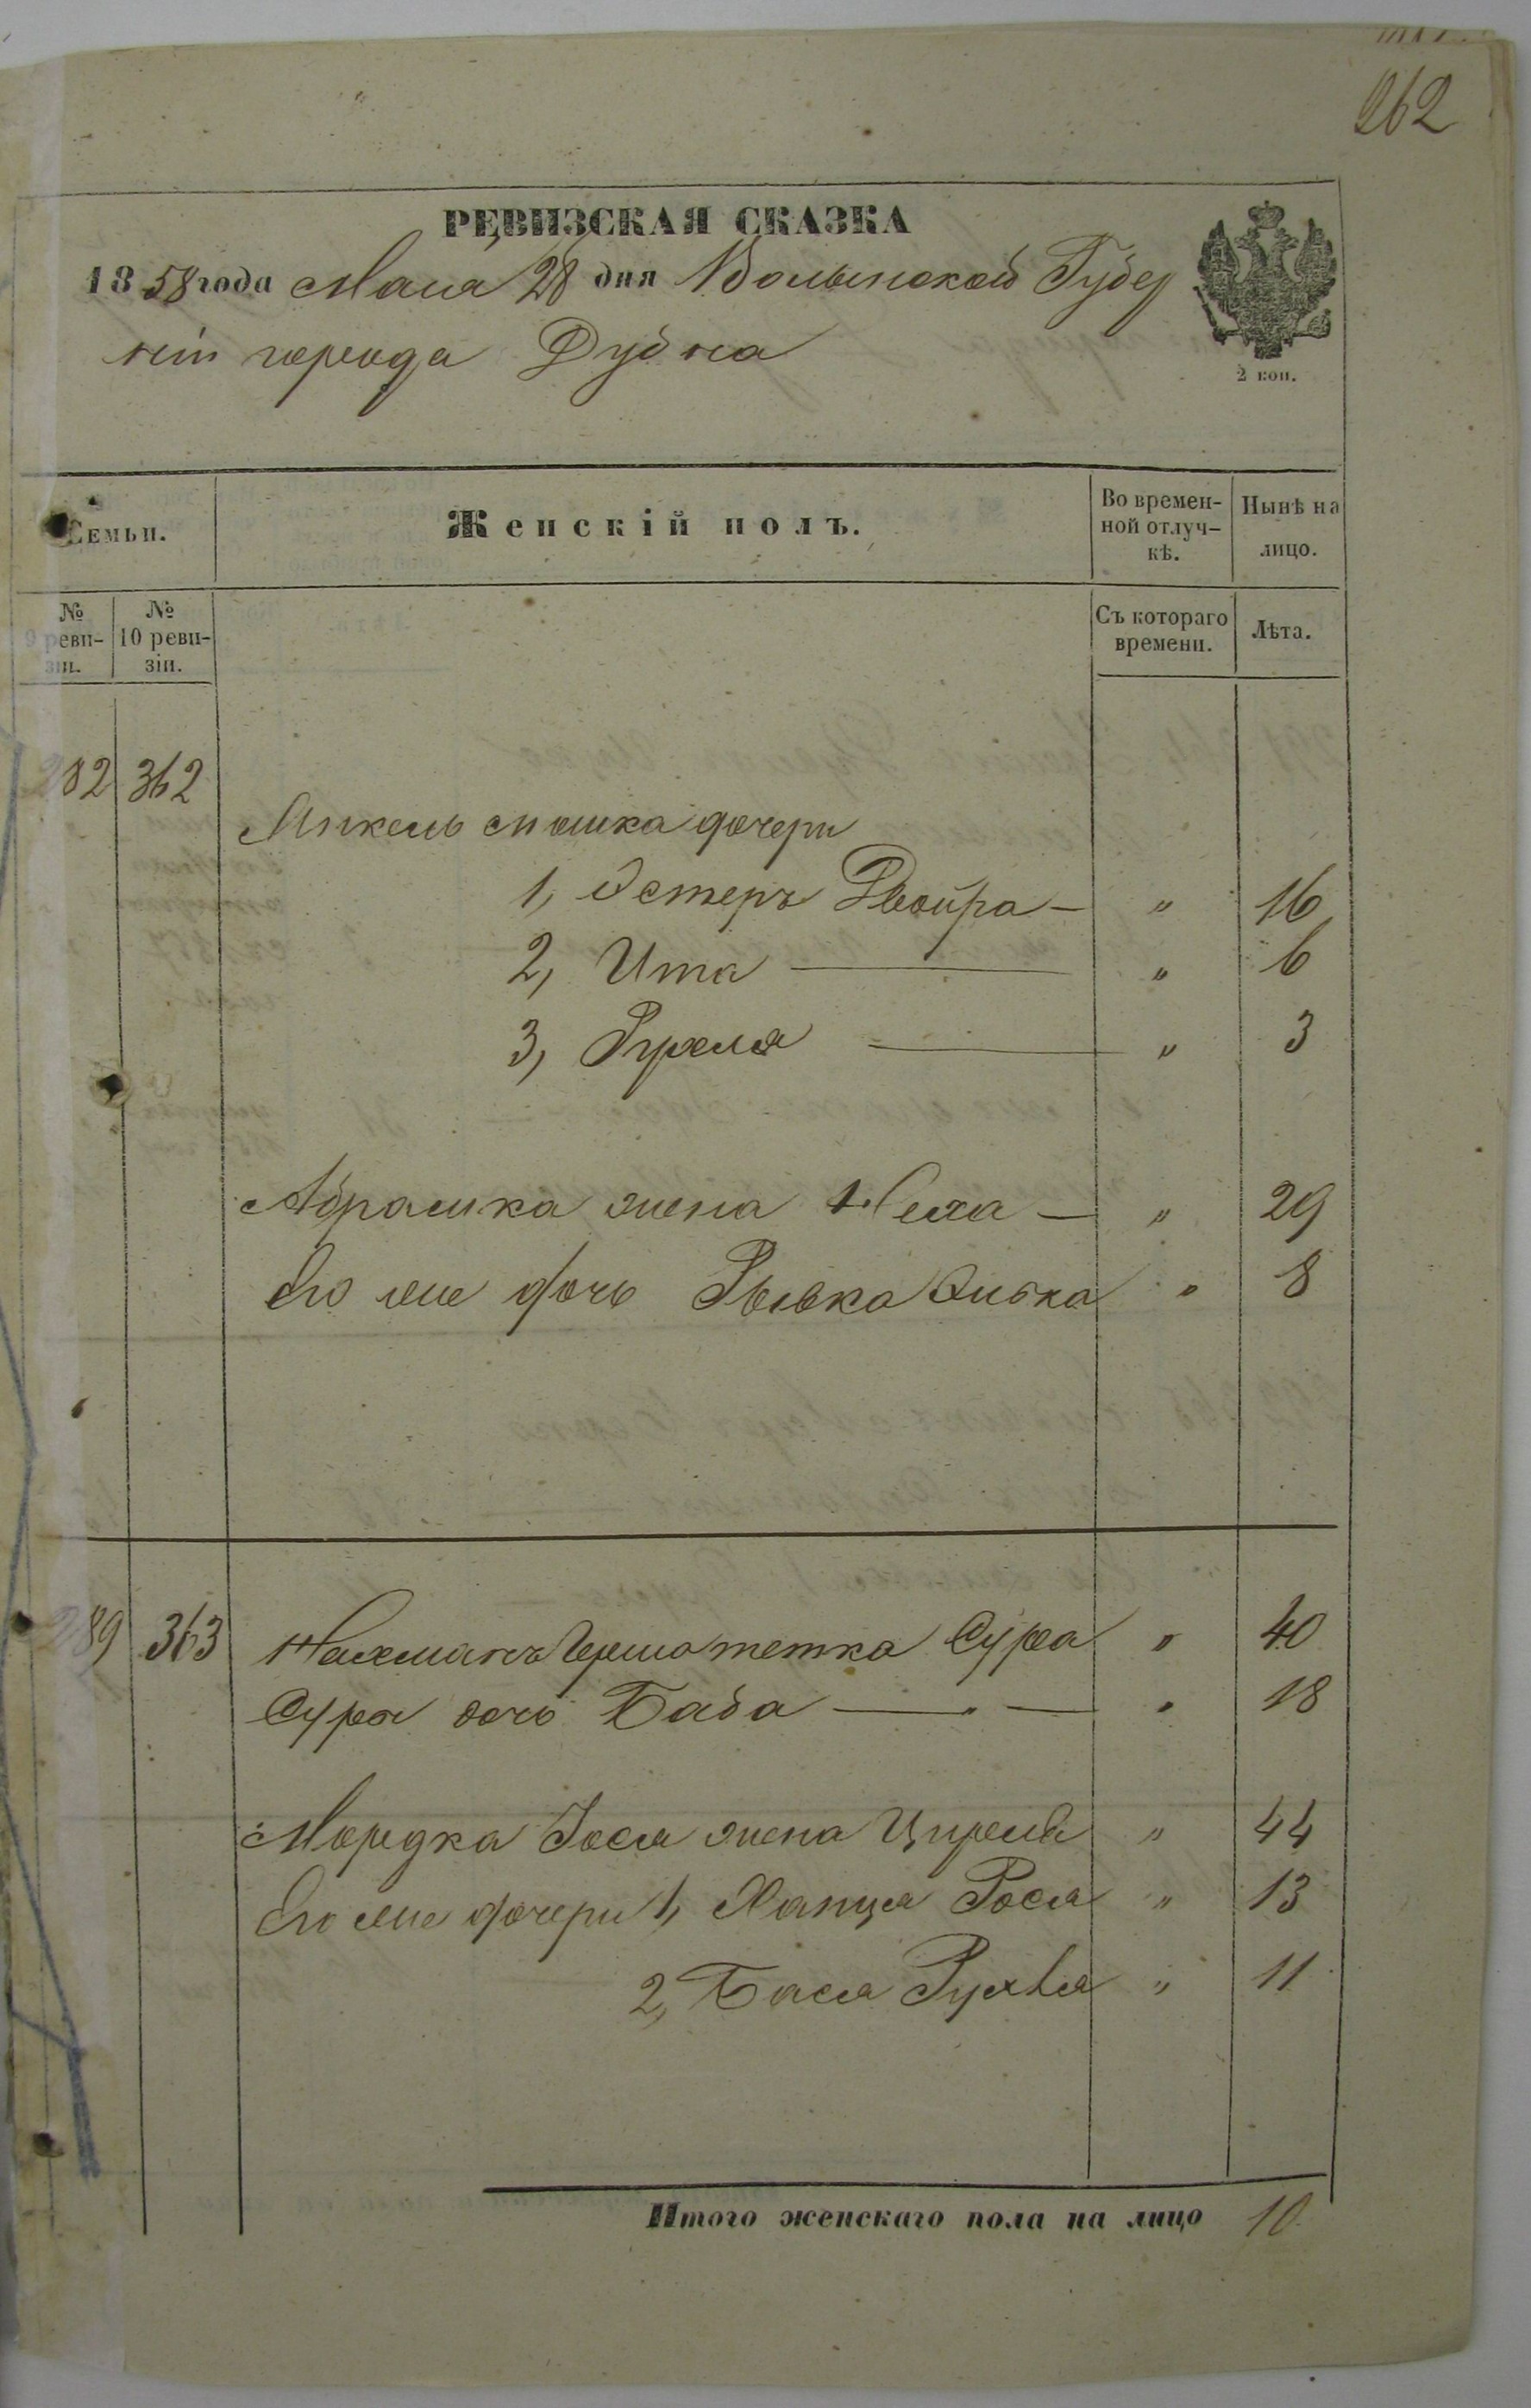 262
РЕВИЗСКАЯ СКАЗКА
1858 года Мая 28 дня Волынской Губер
ніи города Дубна
2 коп.
Семьи. Женскій полъ. Во времен-
ной отлуч-
кѣ. Нынѣ на
лицо.
№
9 реви-
зіи. №
10 реви-
зіи. Съ котораго
времени. Лѣта.
282 362
Микель Мошка дочери
1, Эстеръ Двойра — " 16
2, Ита — " 6
3, Рухля — " 3
Абрамка жена Неха — " 29
Его же дочь Рывка Зиска " 8
289 363 Нахманъ Герша тетка Сура " 40
Сура дочь Баба — " 18
Мордка Іося жена Цирля " 44
Его же дочери 1, Ханця Рося " 13
2, Бася Рухля " 11
Итого женскаго пола на лицо 10